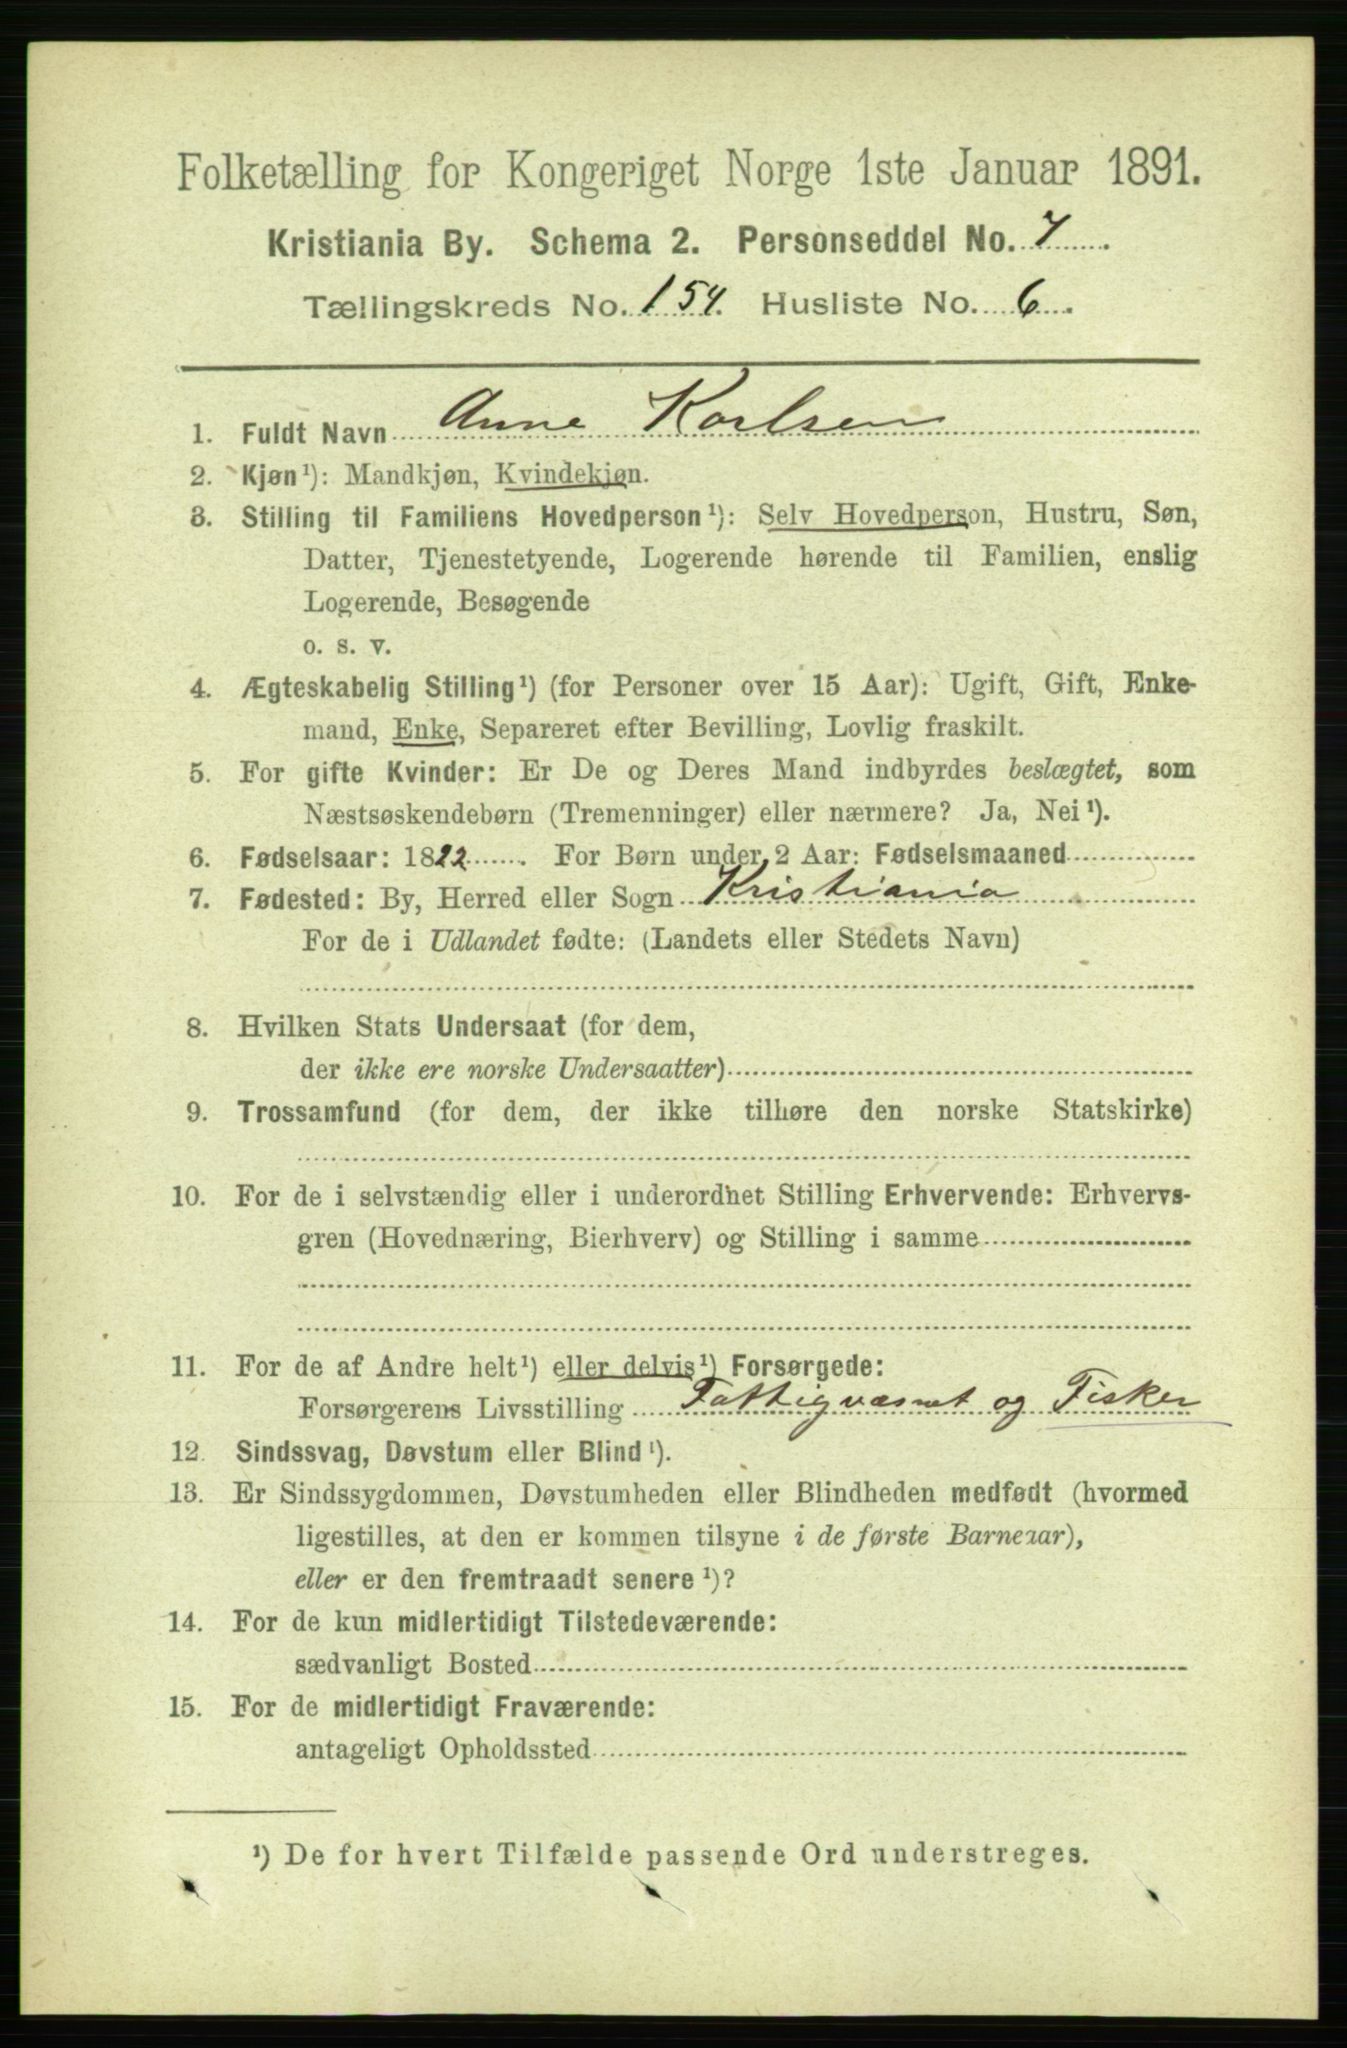 Folketælling for Kongeriget Norge 1ste Januar 1891.
Kristiania By. Schema 2. Personseddel No. 7.
Tællingskreds No. 154. Husliste No. 6.
1. Fuldt Navn Anne Karlsen
2. Kjøn¹): Mandkjøn, Kvindekjøn.
3. Stilling til Familiens Hovedperson¹): Selv Hovedperson, Hustru, Søn,
Datter, Tjenestetyende, Logerende hørende til Familien, enslig
Logerende, Besøgende
o. s. v.
4. Ægteskabelig Stilling¹) (for Personer over 15 Aar): Ugift, Gift, Enke-
mand, Enke, Separeret efter Bevilling, Lovlig fraskilt.
5. For gifte Kvinder: Er De og Deres Mand indbyrdes beslægtet, som
Næstsøskendebørn (Tremenninger) eller nærmere? Ja, Nei¹).
6. Fødselsaar: 1822. For Børn under 2 Aar: Fødselsmaaned
7. Fødested: By, Herred eller Sogn Kristiania
For de i Udlandet fødte: (Landets eller Stedets Navn)
8. Hvilken Stats Undersaat (for dem,
der ikke ere norske Undersaatter)
9. Trossamfund (for dem, der ikke tilhøre den norske Statskirke)
10. For de i selvstændig eller i underordnet Stilling Erhvervende: Erhvervs-
gren (Hovednæring, Bierhverv) og Stilling i samme
11. For de af Andre helt¹) eller delvis¹) Forsørgede:
Forsørgerens Livsstilling Fattigvæsnet og Fisker
12. Sindssvag, Døvstum eller Blind¹).
13. Er Sindssygdommen, Døvstumheden eller Blindheden medfødt (hvormed
ligestilles, at den er kommen tilsyne i de første Barneaar),
eller er den fremtraadt senere¹)?
14. For de kun midlertidigt Tilstedeværende:
sædvanligt Bosted
15. For de midlertidigt Fraværende:
antageligt Opholdssted
¹) De for hvert Tilfælde passende Ord understreges.